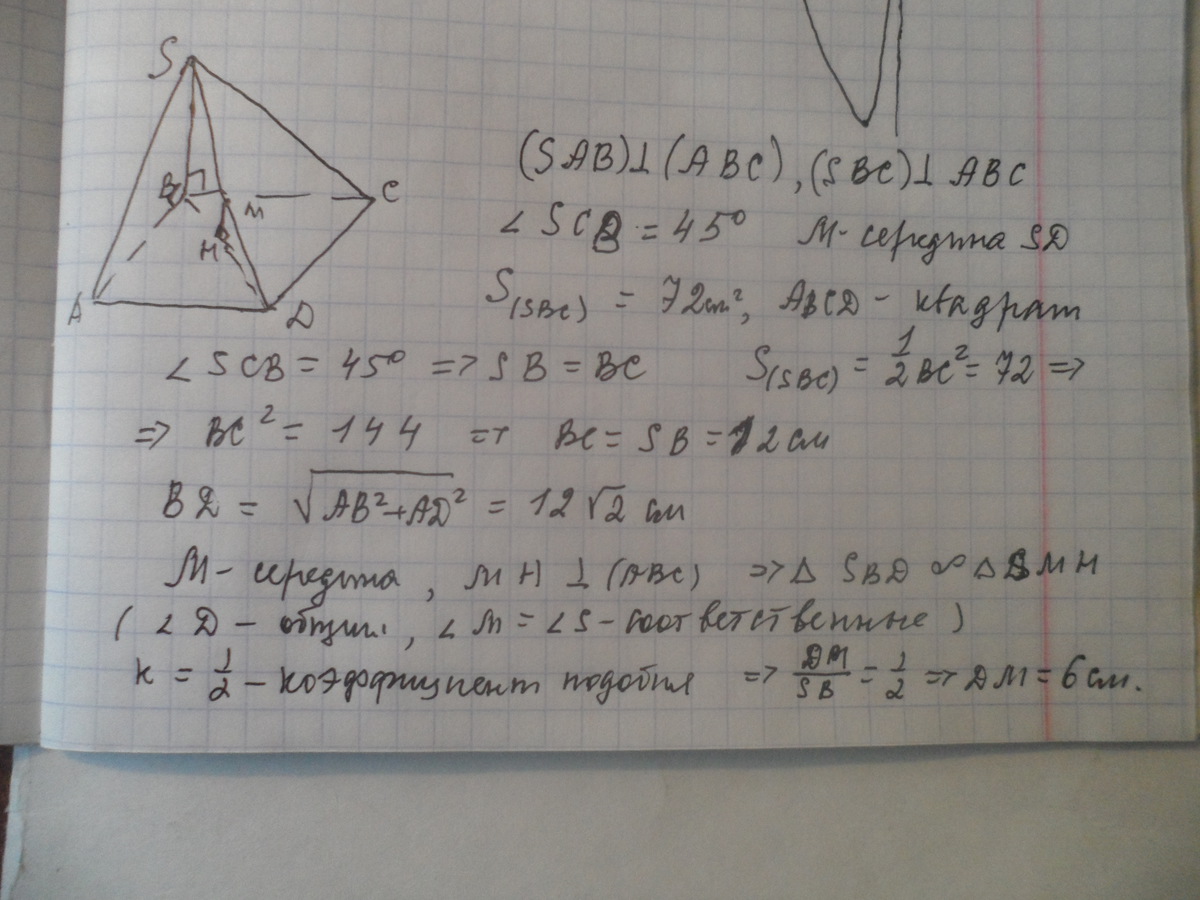 S
B
M
C
H
A
D
(SAB)⊥(ABC), (SBC)⊥ABC
∠SCB = 45° M-середина SD
S(SBC) = 72см², ABCD - квадрат
∠SCB = 45° => SB = BC S(SBC) = 1/2 BC² = 72 =>
=> BC² = 144 => BC = SB = 12 см
BD = √(AB²+AD²) = 12√2 см
M - середина, MH ⊥ (ABC) => Δ SBD ∞ Δ MH
(∠D - общий, ∠M = ∠S - соответственные)
k = 1/2 - коэффициент подобия => DM/SB = 1/2 => DM = 6 см.